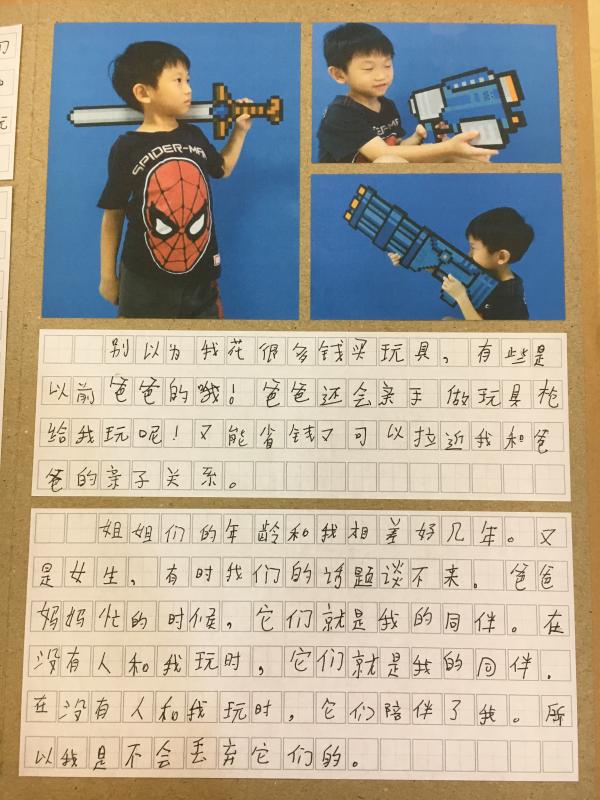 刀
玩
SPIDER-MAN
别以为我花很多钱买玩具，有些是
以前爸爸的哦！爸爸还会亲手做玩具枪
给我玩呢！又能省钱又可以拉近我和爸
爸的亲子关系。
姐姐们的年龄和我相差好几年。又
是女生，有时我们的话题谈不来。爸爸
妈妈忙的时候，它们就是我的同伴。在
没有人和我玩时，它们就是我的同伴．
在没有人和我玩时，它们陪伴了我。所
以我是不会丢弃它们的。